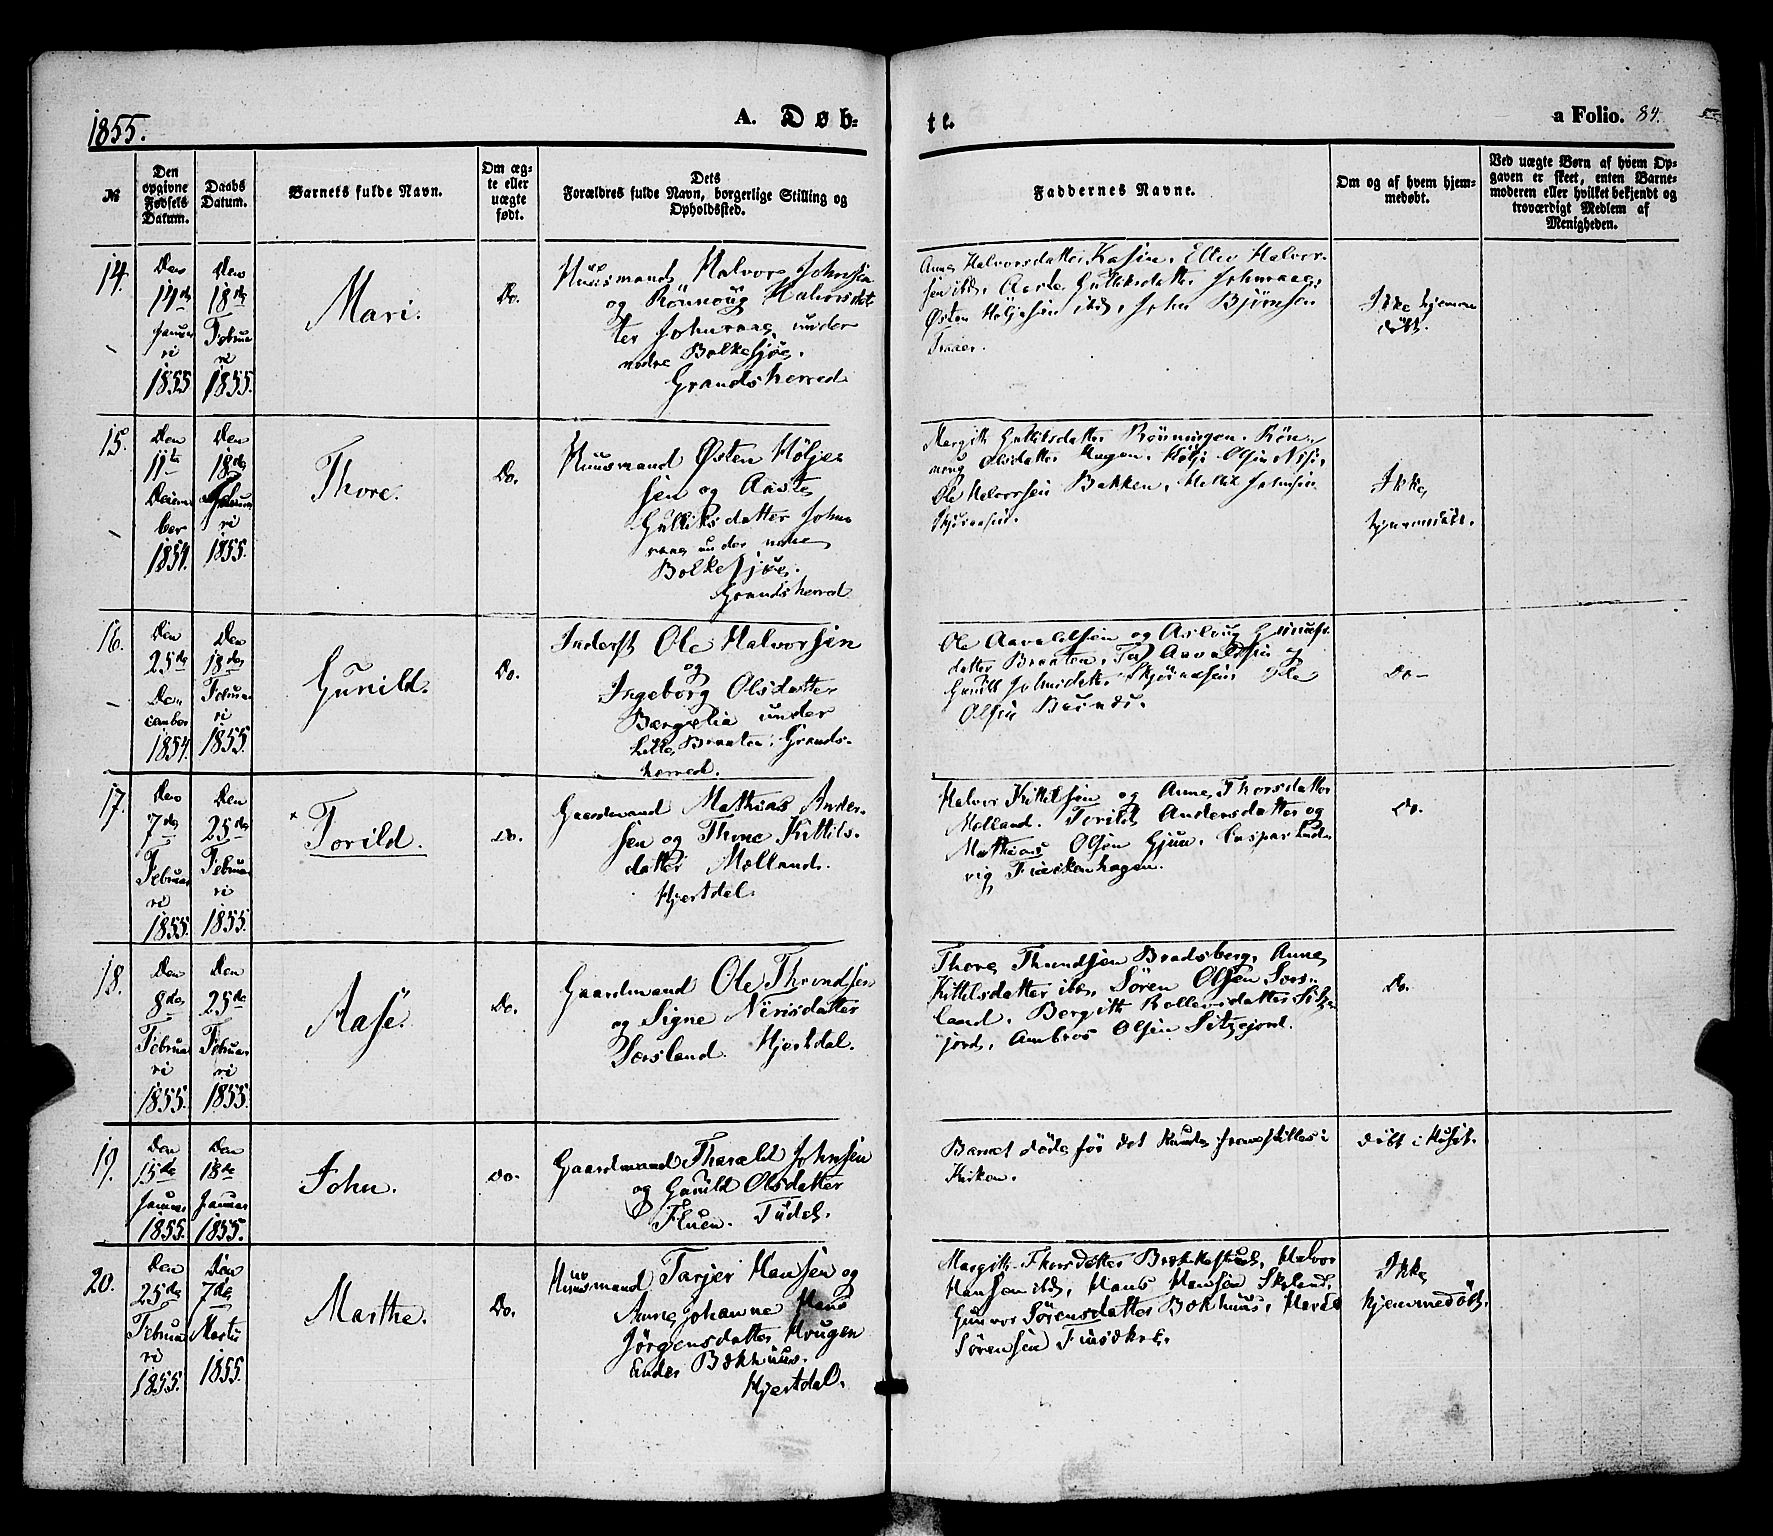 1855.
A. Døb-
te.
a Folio. 84.
№
Den
opgivne
Fødsels
Datum.
Daabs
Datum.
Barnets fulde Navn.
Om æg-
te eller
uægte
født.
Dets
Forældres fulde Navn, borgerlige Stilling og
Opholdssted.
Faddernes Navne.
Om og af hvem hjem-
medøbt.
Ved uægte Børn af hvem Op-
gaven er skeet, enten Barne-
moderen eller hvilket bekjendt og
troværdigt Medlem af
Menigheden.
14.
Den
14de
Januar
ri
1855
Den
18de
Februa
ri
1855.
Mari.
Do.
Huusmand Halvor Johnsen
og Rönnoug Halvorsdat
ter Johnraae under
nedre Bolkesjøe.
Grandsherred
Anne Halvorsdatter Kasin, Ellev Halvor-
sen ibd, Aaste Gulliksdatter Johnraae,
Østen Høljesen ibd, John Bjørnsen
Traaer.
Ikke hjemme
døbt.
15.
Den
11te
Decem
ber
1854.
Den
18de
Februa
ri
1855.
Thore.
Do.
Huusmand Østen Høljes
sen og Aaste
Gulliksdatter John
raae under nedre
Bolkesjøe.
Grandsherred
Margith Gulliksdatter Rönningen. Rön-
noug Olsdatter Hagen, Hølje Olsen
Ole Halvorsen Bakken, John
Ikke
hjemmedøbt.
16.
Den
25de
De-
cember
1854.
Den
18de
Februar
ri
1855.
Gunild.
Do.
Inderst Ole Halvorsen
og
Ingeborg Olsdatter
Bergelia under
Lille Braaten. Grands-
herred.
Ole Aavaldsen og Asloug
datter Braaten, Aavaldsen og
Gunild Johnsdatter Ole
Olsen
Do—
17.
Den
7de
Februar
ri
1855.
Den
25de
Februar
ri
1855.
Torild.
Do.
Gaardmand Mathias Ander-
sen og Thone Kittils-
datter Mælland.
Hjertdal.
Halvor Kittilsen og Anne Thorsdatter
Mælland. Torild Andersdatter og
Mathias Olsen Gjuu. Caspar Lud-
vig Fladkenhagen.
Do.
18.
Den
8de
Februar
ri
1855.
Den
25de
Februar
ri
1855.
Aase.
Do.
Gaardmand Ole Throndsen
og Signe Nirisdatter
Sørsland. Hjertdal.
Thore Throndsen Bradsberg, Anne
Kittelsdatter ibd, Sören Olsen Sørs-
land. Bergith Rollevsdatter Sitze-
jord, Ambros Olsen Sitzejord.
Do.
19.
Den
15de
Januar
1855.
Den
18de
Januar
1855.
John.
Do.
Gaardmand Tharald Johnsen
og Gunild Olsdatter
Fluen. Tudel.
Barnet døde før det kunde fremstilles i
Kirken.
døbt i Huset.
20.
Den
25de
Februa
ri
1855.
Den
7de
Marts
1855.
Marthe.
Do.
Huusmand Tarjer Hansen og
Anne Johanne Hans
Jørgensdatter Haugen
under Bækhuus.
Hjertdal.
Margith Thorsdatter Halvor
Hansen ibd, Hans Hansen Skeland,
Gunvor Sørensdatter Bækhuus,
Sørensen
Ikke
hjemmedøbt.